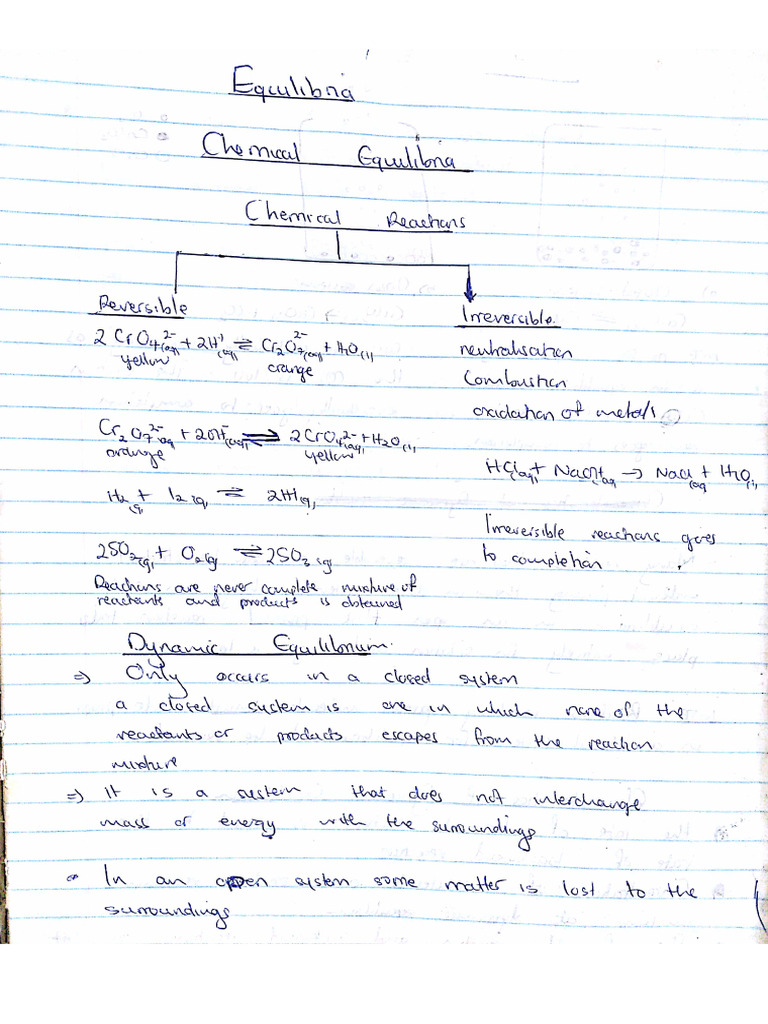 Equilibria
Chemical Equilibria
Chemical Reactions
Reversible
2 CrO4²⁻(aq) + 2H⁺(aq) ⇌ Cr2O7²⁻(aq) + H2O(l)
yellow orange
Cr2O7²⁻(aq) + 2OH⁻(aq) ⇌ 2CrO4²⁻(aq) + H2O(l)
orange yellow
H2(g) + I2(g) ⇌ 2HI(g)
2SO2(g) + O2(g) ⇌ 2SO3(g)
Reactions are never complete mixture of
reactants and products is obtained
Irreversible
neutralisation
Combustion
oxidation of metals
HCl(aq) + NaOH(aq) → NaCl(aq) + H2O(l)
Irreversible reactions goes
to completion
Dynamic Equilibrium.
⇒ Only occurs in a closed system
a closed system is one in which none of the
reactants or products escapes from the reaction
mixture
⇒ It is a system that does not interchange
mass or energy with the surroundings
In an open system some matter is lost to the
surroundings